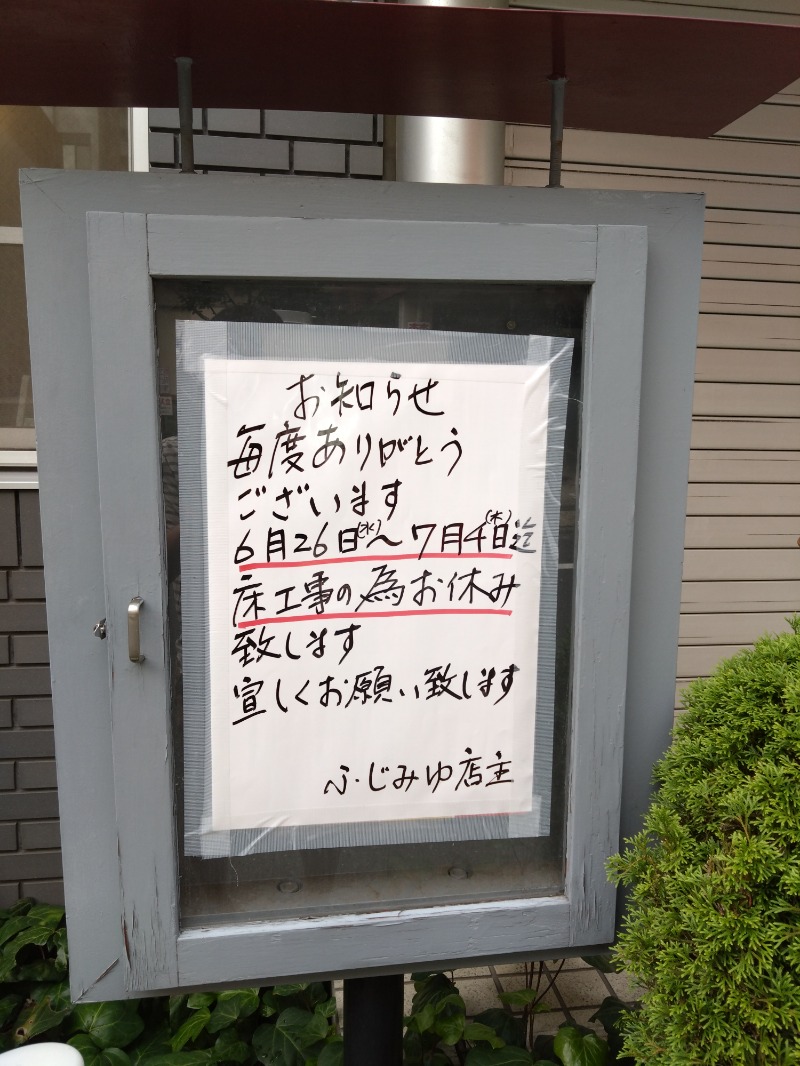 お知らせ
毎度ありがとう
ございます
6月26日(水)〜7月4日(木)迄
床工事の為お休み
致します
宜しくお願い致します
ふじみゆ店主